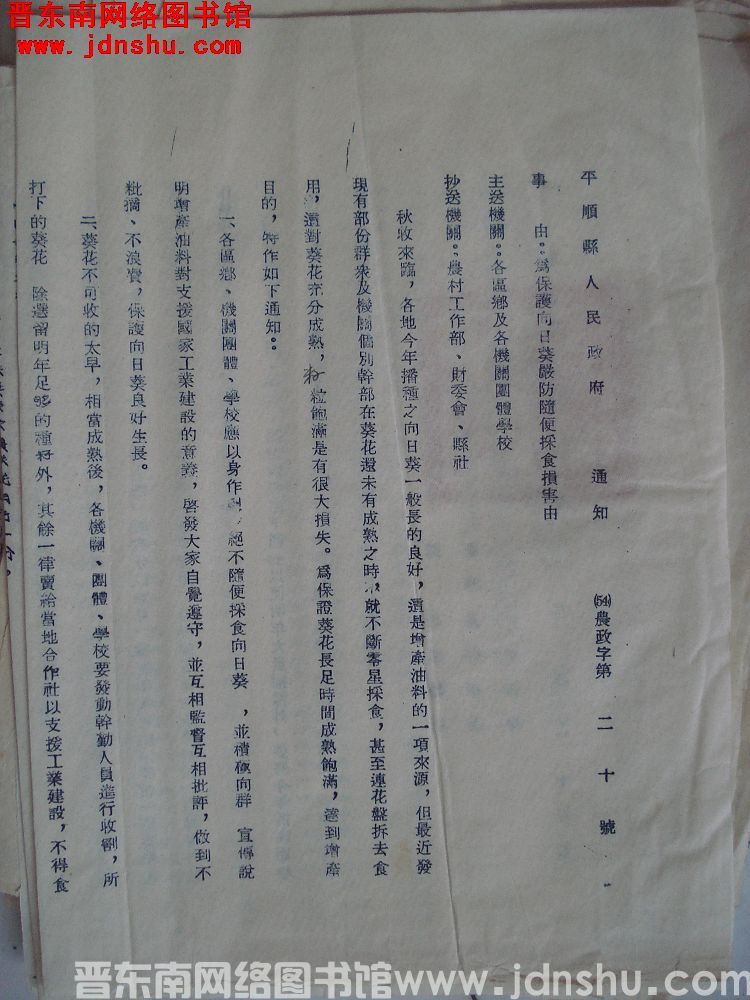 晋东南网络图书馆
www.jdnshu.com
平順縣人民政府 通知 (54)農政字第二十號
事 由：爲保護向日葵嚴防隨便採食損害由
主送機關：各區鄉及各機關團體學校
抄送機關：農村工作部、財委會、縣社
秋收來臨，各地今年播種之向日葵一般長的良好，這是增產油料的一項來源，但最近發
現有部份群衆及機關個別幹部在葵花還未有成熟之時，就不斷零星採食，甚至連花盤拆去食
用，這對葵花充分成熟，籽粒飽滿是有很大損失。爲保證葵花長足時間成熟飽滿，達到增產
目的，特作如下通知：
一、各區鄉、機關團體、學校應以身作則，絕不隨便採食向日葵，並積極向群 宣傳說
明增產油料對支援國家工業建設的意義，啓發大家自覺遵守，並互相監督互相批評，做到不
粃獁、不浪費，保護向日葵良好生長。
二、葵花不可收的太早，相當成熟後，各機關、團體、學校要發動幹勤人員進行收割，所
打下的葵花 除選留明年足够的種籽外，其餘一律賣給當地合作社以支援工業建設，不得食
晋东南网络图书馆www.jdnshu.com